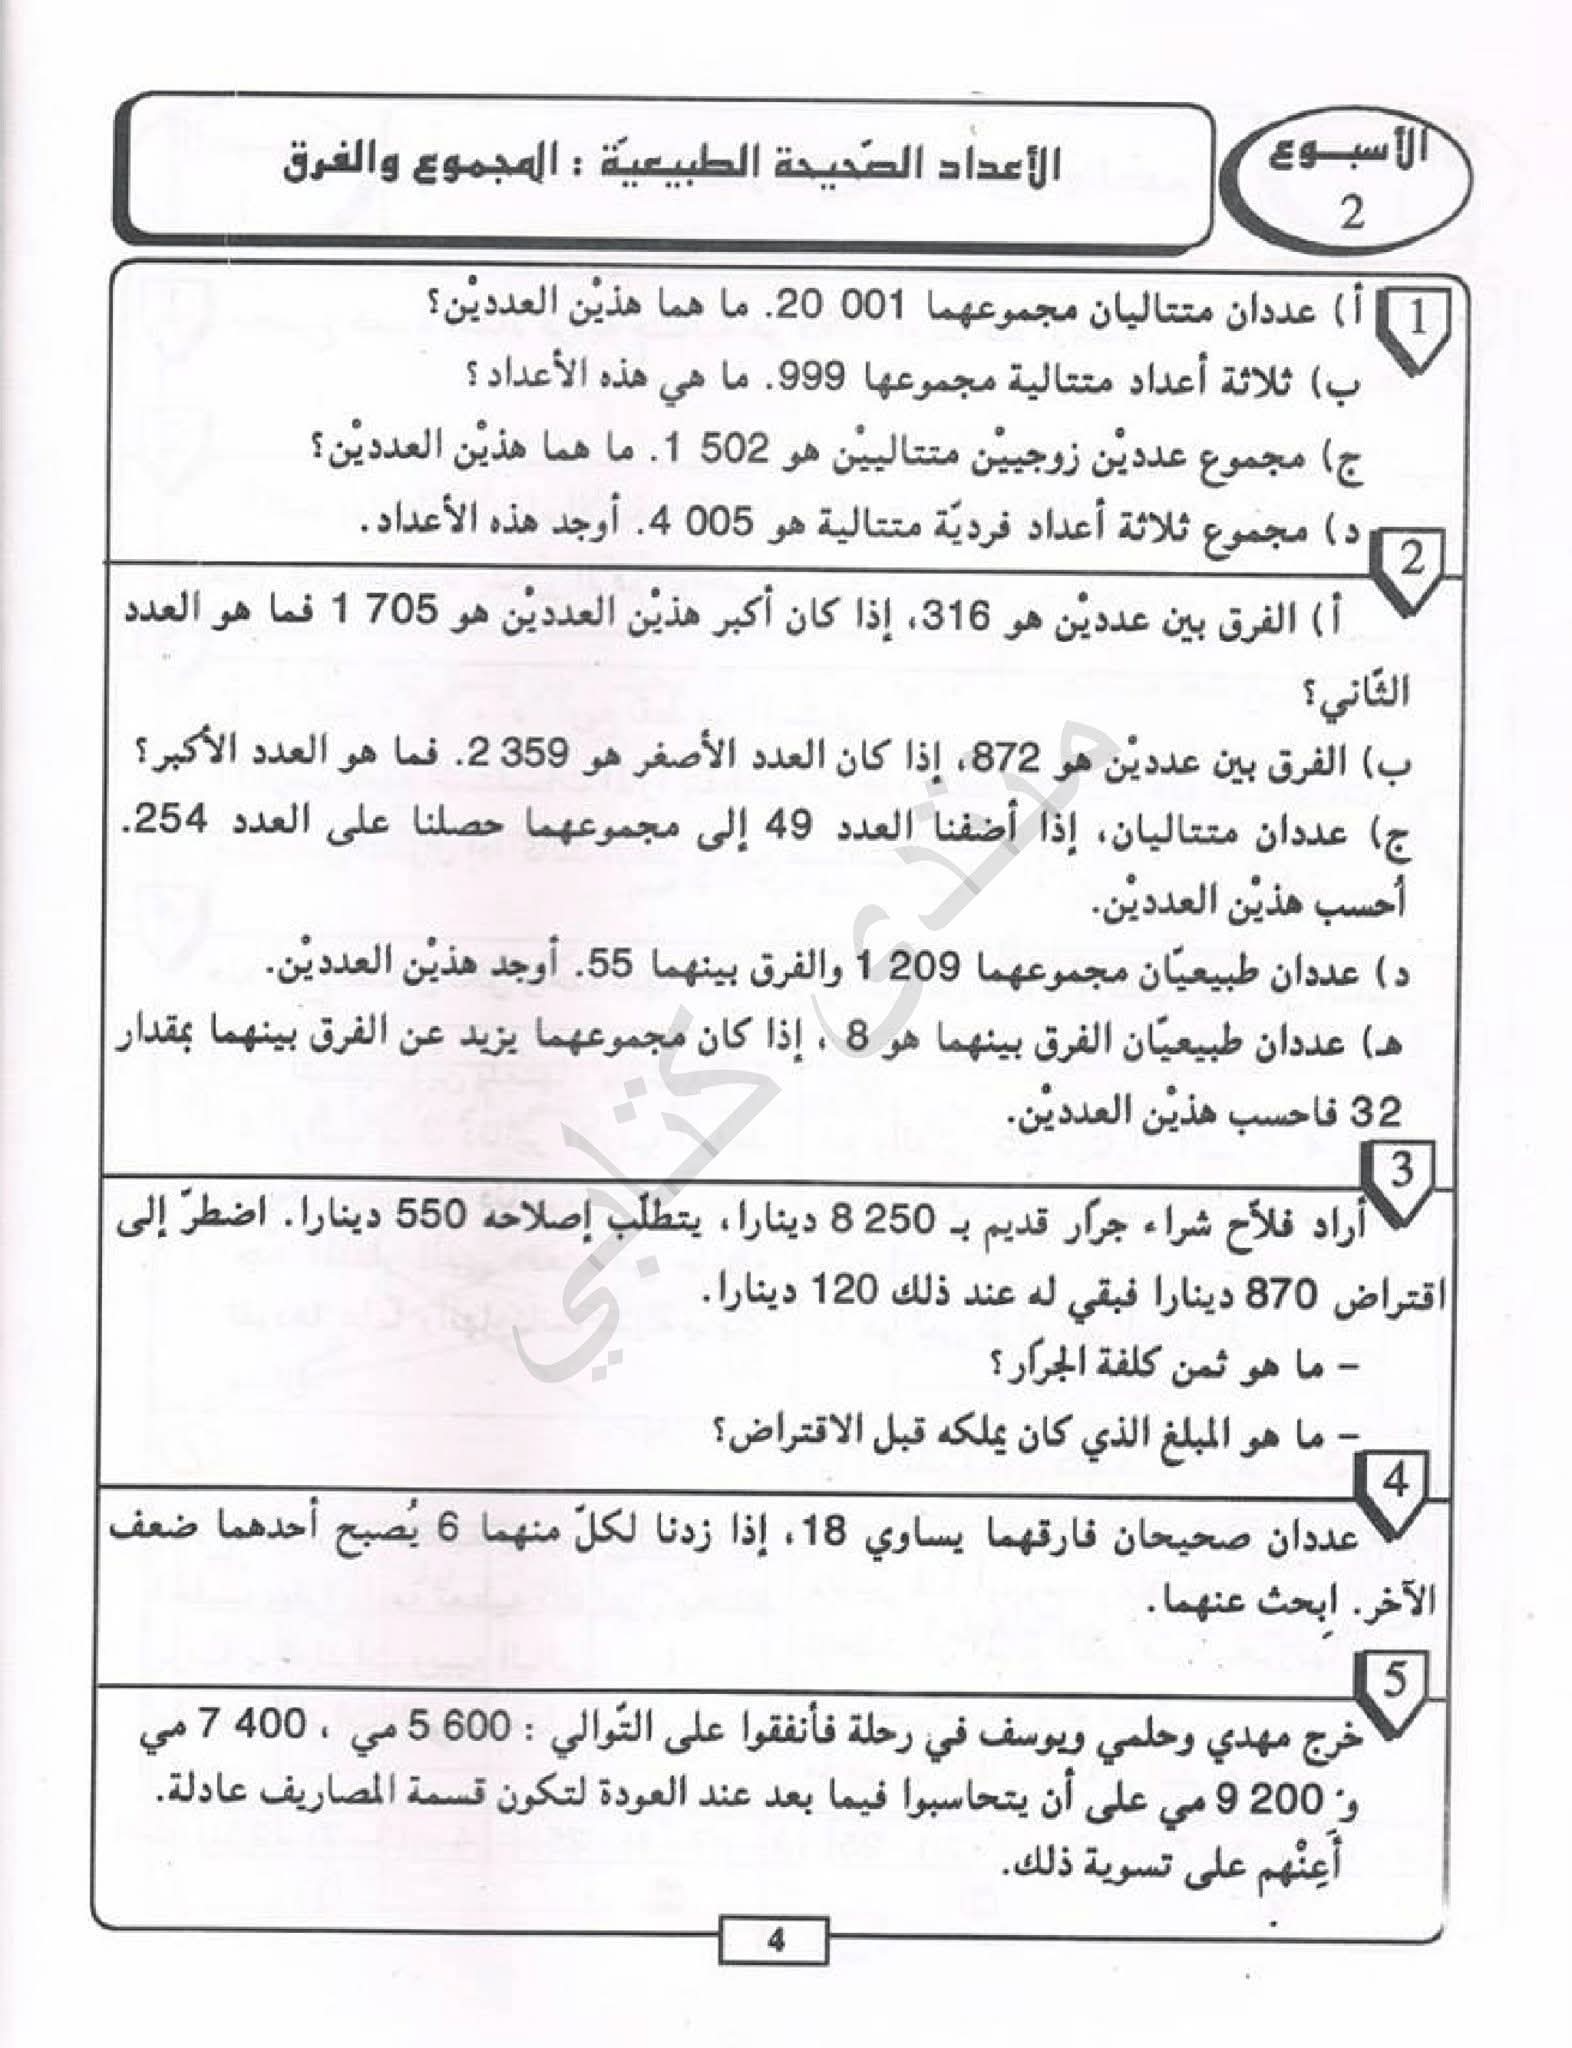 الأسبوع
2
الأعداد الصّحيحة الطبيعيّة : المجموع والفرق
1
أ) عددان متتاليان مجموعهما 001 20. ما هما هذيْن العدديْن؟
ب) ثلاثة أعداد متتالية مجموعها 999. ما هي هذه الأعداد؟
ج) مجموع عدديْن زوجييْن متتالييْن هو 502 1. ما هما هذيْن العدديْن؟
د) مجموع ثلاثة أعداد فرديّة متتالية هو 005 4. أوجد هذه الأعداد.
2
أ) الفرق بين عدديْن هو 316، إذا كان أكبر هذيْن العدديْن هو 705 1 فما هو العدد
الثّاني؟
ب) الفرق بين عدديْن هو 872، إذا كان العدد الأصغر هو 359 2. فما هو العدد الأكبر؟
ج) عددان متتاليان، إذا أضفنا العدد 49 إلى مجموعهما حصلنا على العدد 254.
أحسب هذيْن العدديْن.
د) عددان طبيعيّان مجموعهما 209 1 والفرق بينهما 55. أوجد هذيْن العدديْن.
هـ) عددان طبيعيّان الفرق بينهما هو 8 ، إذا كان مجموعهما يزيد عن الفرق بينهما بمقدار
32 فاحسب هذيْن العدديْن.
3
أراد فلاّح شراء جرّار قديم بـ 250 8 دينارا، يتطلّب إصلاحه 550 دينارا. اضطرّ إلى
اقتراض 870 دينارا فبقي له عند ذلك 120 دينارا.
– ما هو ثمن كلفة الجرّار؟
– ما هو المبلغ الذي كان يملكه قبل الاقتراض؟
4
عددان صحيحان فارقهما يساوي 18، إذا زدنا لكلّ منهما 6 يُصبح أحدهما ضعف
الآخر. اِبحث عنهما.
5
خرج مهدي وحلمي ويوسف في رحلة فأنفقوا على التّوالي : 600 5 مي ، 400 7 مي
و 200 9 مي على أن يتحاسبوا فيما بعد عند العودة لتكون قسمة المصاريف عادلة.
أَعِنْهم على تسوية ذلك.
منتدى كتابي
4